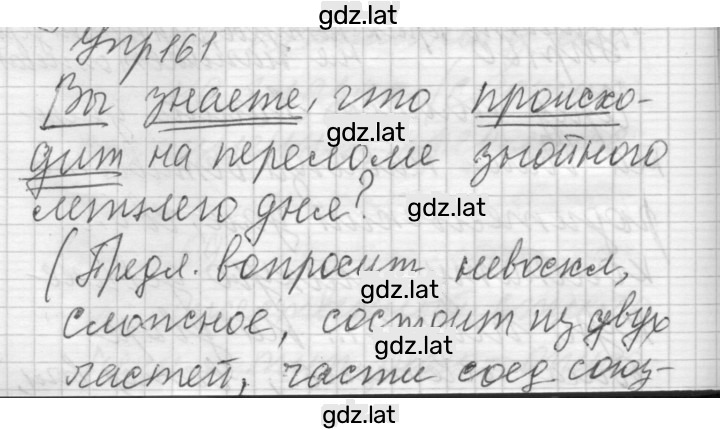 gdz.lat
Упр 161
Вы знаете, что происхо-
gdz.lat
дит на переломе знойного
летнего дня?
gdz.lat
(Предл. вопросит. невоскл,
gdz.lat
сложное, состоит из двух
gdz.lat
частей, части соед союз-
gdz.lat